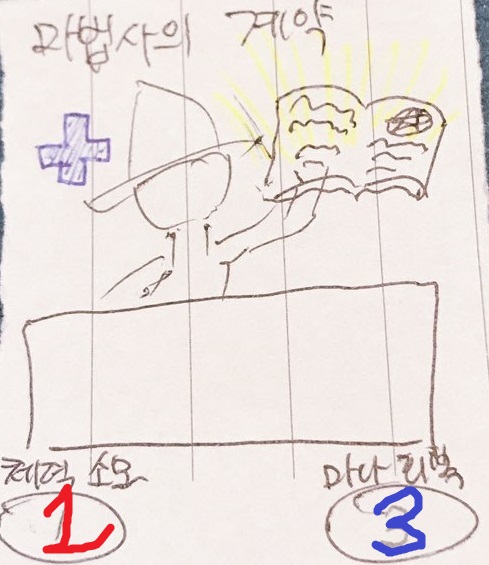 마법사의 계약
체력 소모 마나 회복
1 3